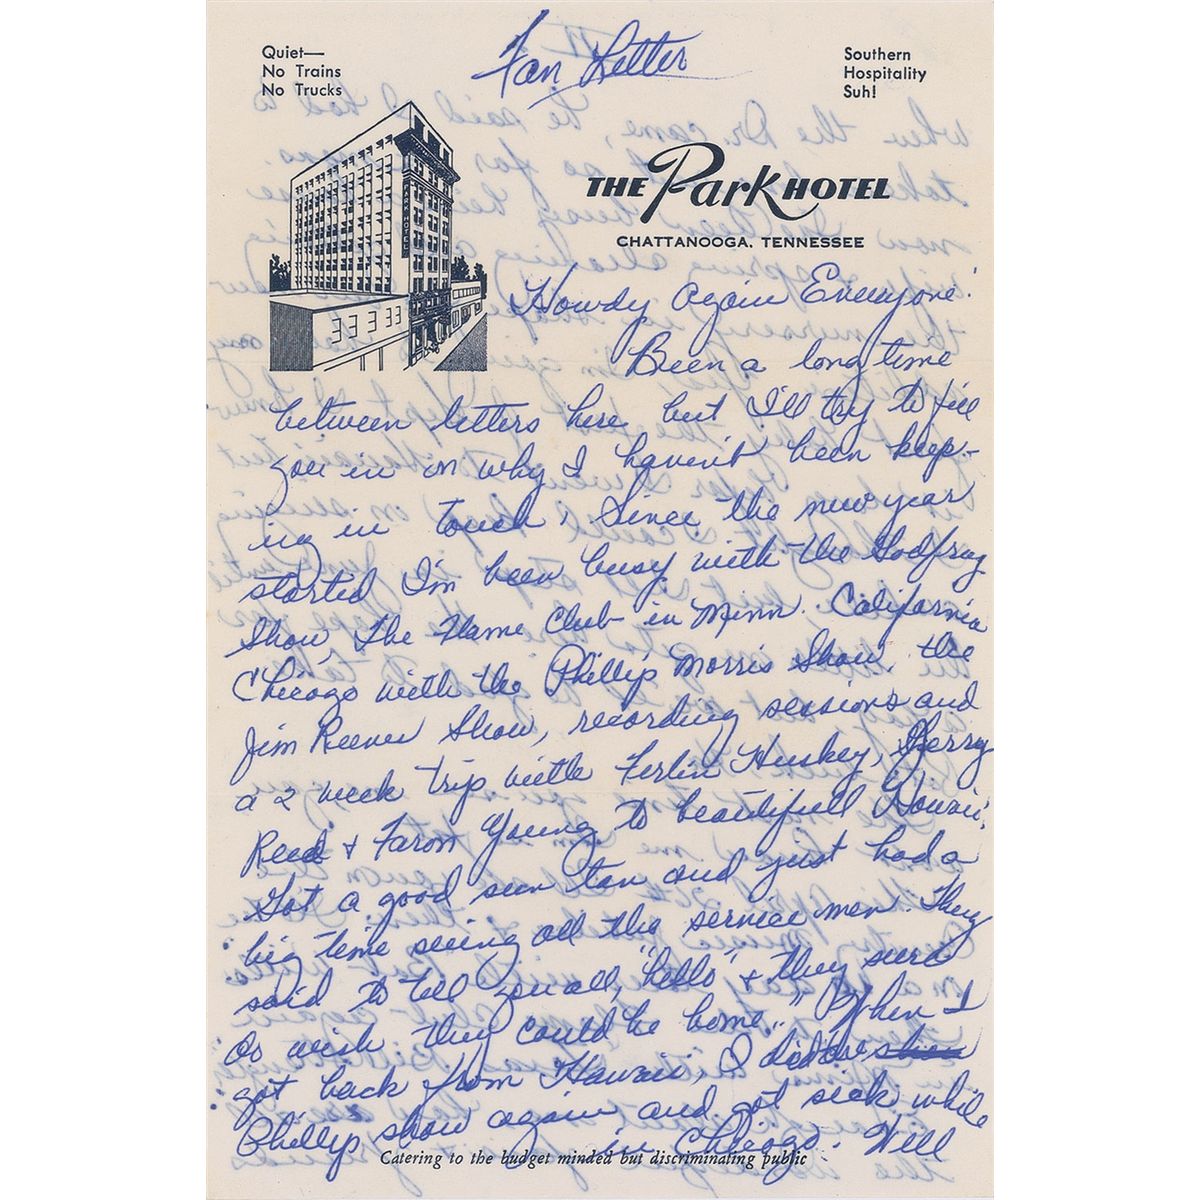 Fan Letter
Quiet—
No Trains
No Trucks
Southern
Hospitality
Suh!
THE Park HOTEL
CHATTANOOGA, TENNESSEE
PARK HOTEL
Howdy again Everyone!
Been a long time
between letters here but I'll try to fill
you in on why I haven't been keep-
ing in touch. Since the new year
started I'm been busy with the Godfrey
Show, The Flame Club in Minn. California
Chicago with the Phillip Morris Show, the
Jim Reeves Show, recording sessions and
a 2 week trip with Ferlin Huskey, Jerry
Reed & Faron Young to beautifull Hawaii.
Got a good sun tan and just had a
big time seeing all the service men. They
said to tell you all, "hello" & they sure
do wish they could be home." When I
got back from Hawaii, I did the
Phillip show again and got sick while
in Chicago. Will
Catering to the budget minded but discriminating public